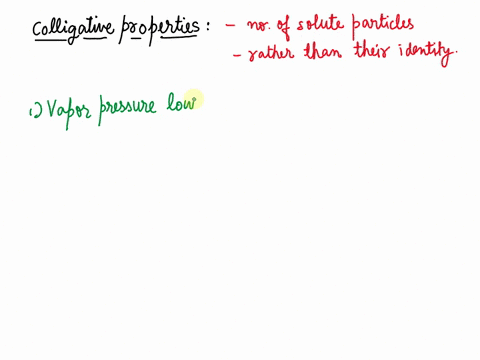 Colligative properties : - no. of solute particles
- rather than their identity.
1.) Vapor pressure low